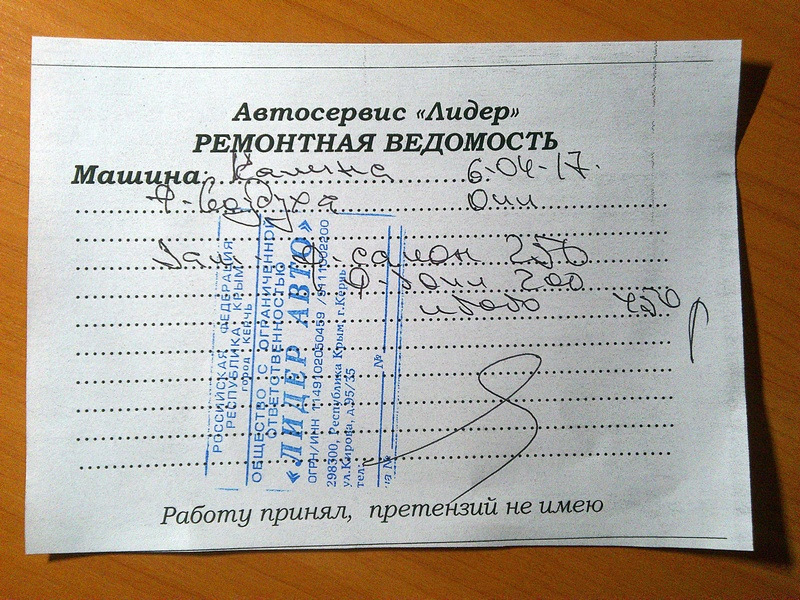 Автосервис «Лидер»
РЕМОНТНАЯ ВЕДОМОСТЬ
Машина: Калина 6.04-17.
Ф-воздуха
Зам. Ф. салон 250
Ф. 200
450
РОССИЙСКАЯ ФЕДЕРАЦИЯ
РЕСПУБЛИКА КРЫМ
город КЕРЧЬ
ОБЩЕСТВО С ОГРАНИЧЕННОЙ
ОТВЕТСТВЕННОСТЬЮ
«ЛИДЕР АВТО»
ОГРН/ИНН 1149102050459 / 9111002200
298300, Республика Крым, г.Керчь
ул.Кирова, д.95/35
тел:
№
на №
Работу принял, претензий не имею